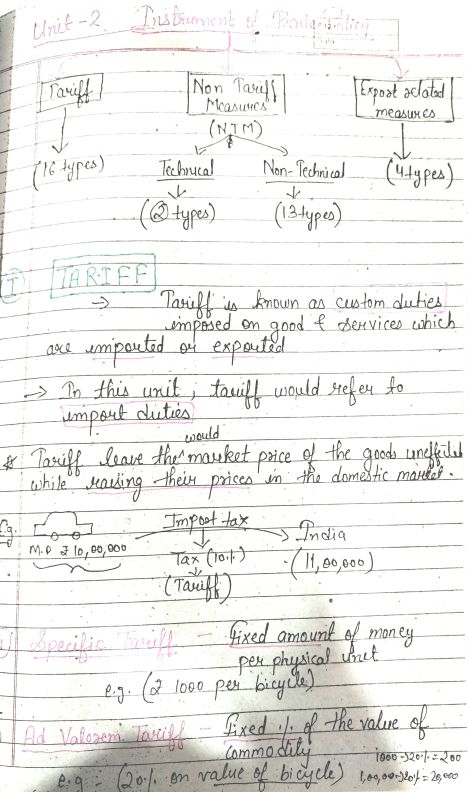 Unit-2 Instrument of Trade Policy
Tariff
Non Tariff Measures
(NTM)
Export related measures
(16 types)
Technical
Non-Technical
(4 types)
(2 types)
(13 types)
I TARIFF
→ Tariff is known as custom duties
imposed on good & services which
are imported or exported
→ In this unit, tariff would refer to
import duties
would
* Tariff leave the market price of the goods
while raising their prices in the domestic market.
e.g.
M.P ₹ 10,00,000
Import tax
Tax (10%)
(Tariff)
India
(11,00,000)
Specific Tariff - Fixed amount of money
per physical unit
e.g. (₹ 1000 per bicycle)
Ad Valorem Tariff - Fixed % of the value of
commodity
e.g - (20% on value of bicycle)
1000→20% = 200
1,00,000→20% = 20,000